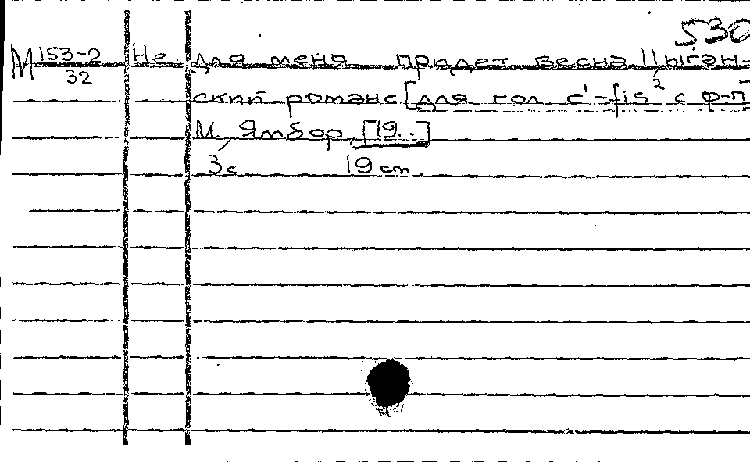 530
М 153-2/32 Не для меня придет весна Цыган-
ский романс [для гол c'-fis² с ф-п
М. Ямбор, [19..]
3с 19 см.